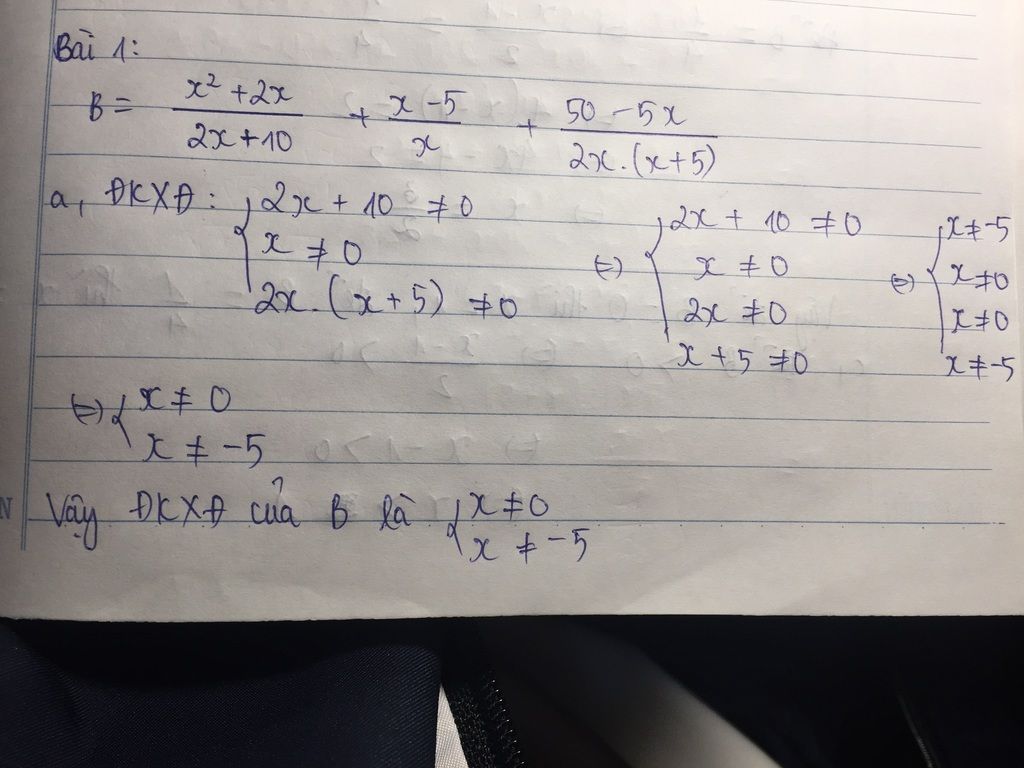 Bài 1:
B = \frac{x² + 2x}{2x + 10} + \frac{x - 5}{x} + \frac{50 - 5x}{2x.(x+5)}
a, ĐKXĐ: { 2x + 10 ≠ 0 ; x ≠ 0 ; 2x.(x+5) ≠ 0 ⇔ { 2x + 10 ≠ 0 ; x ≠ 0 ; 2x ≠ 0 ; x + 5 ≠ 0 ⇔ { x ≠ -5 ; x ≠ 0 ; x ≠ 0 ; x ≠ -5
⇔ { x ≠ 0 ; x ≠ -5
Vậy ĐKXĐ của B là { x ≠ 0 ; x ≠ -5